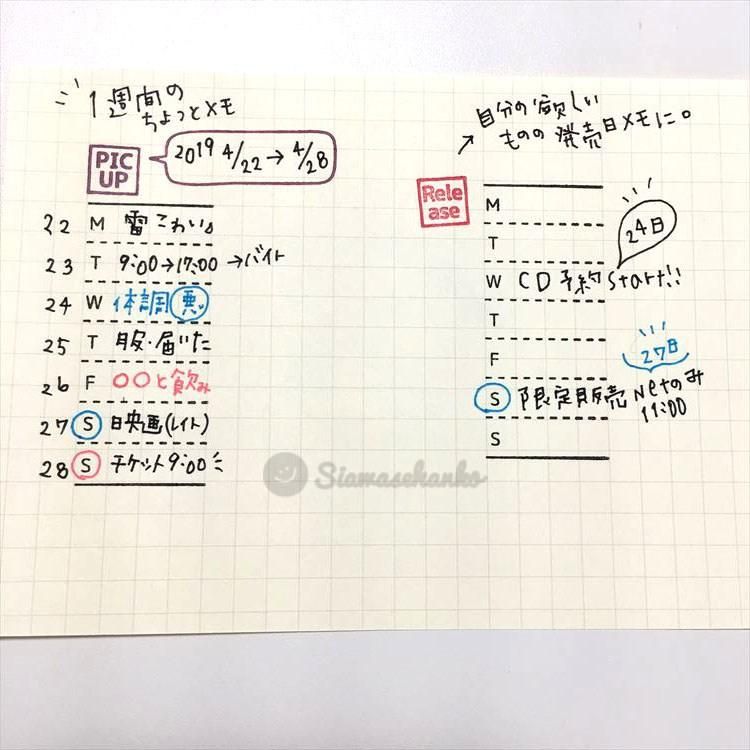 1週間の
ちょっとメモ
PIC
UP
2019 4/22→4/28
22 M 雷こわい。
23 T 9:00→17:00 →バイト
24 W 体調悪い
25 T 服・届いた
26 F 〇〇と飲み
27 S 映画(レイト)
28 S チケット9:00
自分の欲しい
ものの発売日メモに。
Rele
ase
M
T
24日
W CD予約start!!
T
F
27日
S 限定販売 Netのみ
11:00
S
Siawasehanko